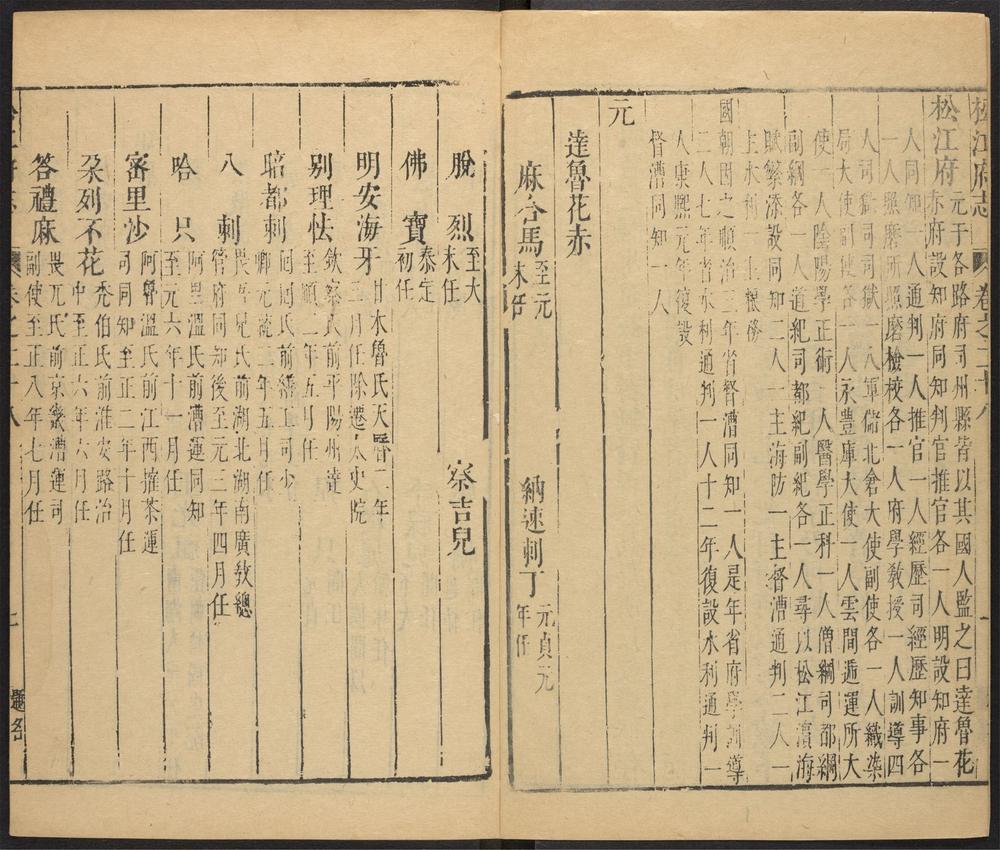 松江府志 卷之二十八
松江府
元于各路府司州縣皆以其國人監之曰達魯花
赤府設知府同知判官推官各一人明設知府一
人同知 通判一人推官一人經歷司經歷知事各
一人照磨所照磨檢校各一人府學教授一人訓導四
人司獄司司獄一人軍儲北倉大使副使各一人織染
局大使副使各一人永豐庫大使一人雲間遞運所大
使一人陰陽學正術一人醫學正科一人僧綱司都綱
副綱各一人道紀司都紀副紀各一人尋以松江濱海
賦繁添設同知二人一主海防一主督漕通判二人一
主水利一主
國朝因之順治三年省督漕同知一人是年省府學訓導
二人七年省水利通判一人十二年復設水利通判一
人康熙元年復設
督漕同知一人
元
達魯花赤
麻合馬 至元末任
納速剌丁 元貞元年任
脫烈 至大末任
察吉兒
佛寶 泰定初任
明安海牙 甘木魯氏天曆二年三月任除遷太史院
別理怯 欽察氏前平陽州達 至順二年五月任
昭都剌 前繕工司少卿元統三年五月任
八剌 畏吾兒氏前湖北湖南廣教總管府同知後至元三年四月任
哈只 阿里溫氏前漕運同知至元六年十一月任
審里沙 阿魯溫氏前江西搉茶運司同知至正二年十月任
朶列不花 禿伯氏前淮安路治中至正六年六月任
答禮麻 畏兀氏前京畿漕運司副使至正八年七月任
題名